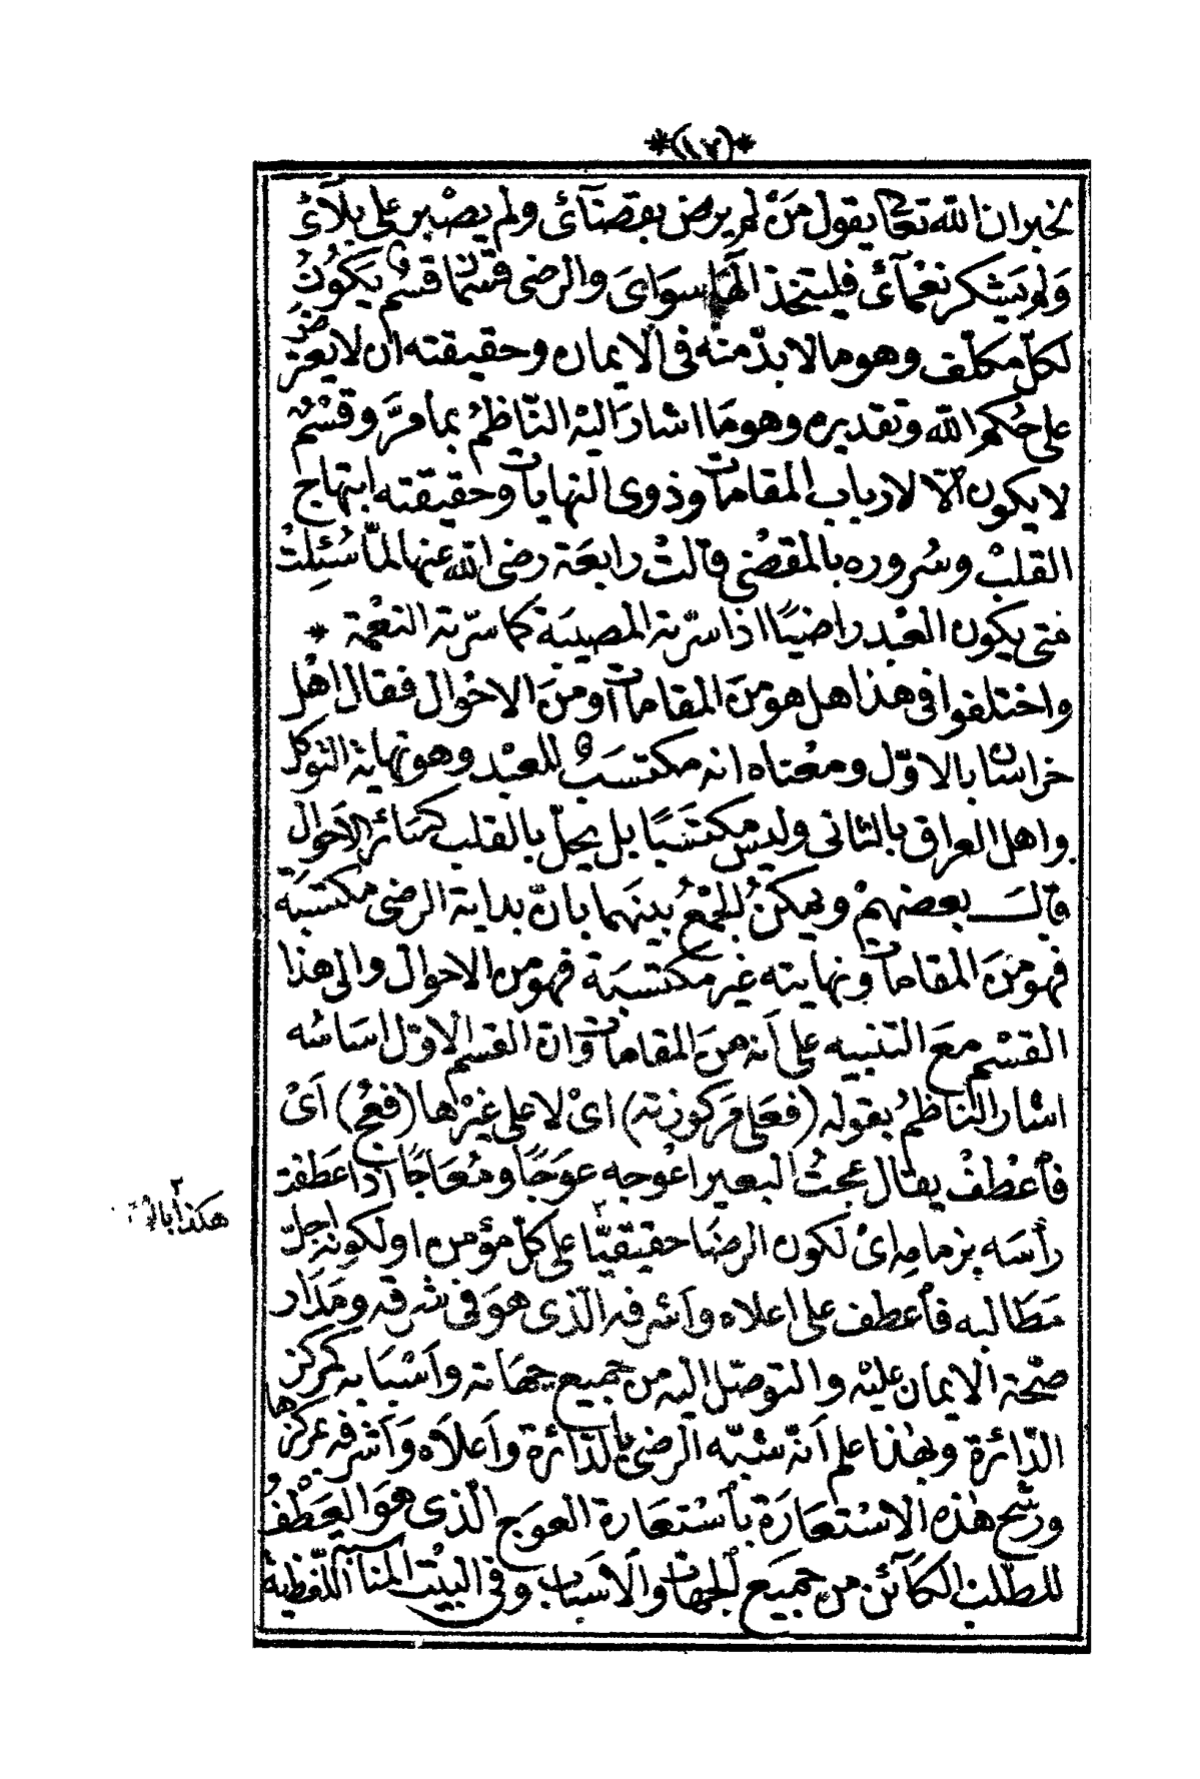 *(١٧)*
لخبر ان الله تعالى يقول مَنْ لم يرض بقضآئى ولم يصْبر على بلآئى
وَلم يَشكر نعْمآئى فليتخذ الٰهًا سوَاىَ والرضى قسْمان قسْم يَكُونُ
لكلّ مكلّف وهو ما لا بدّ منه فى الايمان وحقيقته ان لا يعترض
على حُكم الله وتقديره وهو مَا اشارَ اليْه النّاظمُ بما مرَّ وقسْمٌ
لا يكون الّا لارباب المقامات وذوى النهايات وحقيقته ابتهاج
القلبْ وسُروره بالمقضْى قالتْ رابعَة رضى الله عنها لمّا سُئِلتْ
متى يكون العبْد راضيًا اذا سرّته المصيبَة كما سرّته النعْمة *
واختلفوا فى هذا هل هو منَ المقامات او منَ الاحْوال فقال اهْل
خراسان بالاوّل ومعْناه انه مكتسَبٌ للعبْد وهو نهاية التوكل
واهل العراق بالثانى وليسَ مكتسَبًا بل يحلّ بالقلب كسَائر الاَحوال
قالــ بعضهمْ ويمكنُ الجمْعُ بينَهما بانّ بداية الرضى مكتسَبَة
فهو منَ المقامات ونهايته غيْر مكتسَبَة فهو من الاحوال والى هذا
القسْم معَ التنبيه على أنه منَ المقامات وانّ القسم الاوّل اسَاسُه
اشار الناظمُ بقوله (فعَلى مَركوزته) اىْ لا على غيْرها (فعُج) اَىْ
فٱعْطفْ يقال عجتُ البعير اعْوجه عوَجًا ومُعَاجًا اذا عَطفت
رأسَه بزمامِه اىْ لكون الرضَا حقيقيًّا على كلّ مؤمن او لكونه اجلّ
مَطَالبه فٱعطف على اعلاه وَاَشرفه الّذى هوَ فى شرفه ومَدَار
صحّة الايمان عليْه والتوصّل اليه من جميع جهَاته وأسْبَابه كمركز
الدّائرة وبهٰذا علم اَنّه شبّه الرضى بالدّائرة وأعلاَه وَأشرفه بمركزها
ورشّح هٰذه الاسْتعَارَة بٱسْتعَارة العوَج الّذى هوَ العَطْفُ
للطّلب الكَآئن من جميَع الجهَات والأسبَاب وفى البيْت المناسبة اللّفظية
هكذا